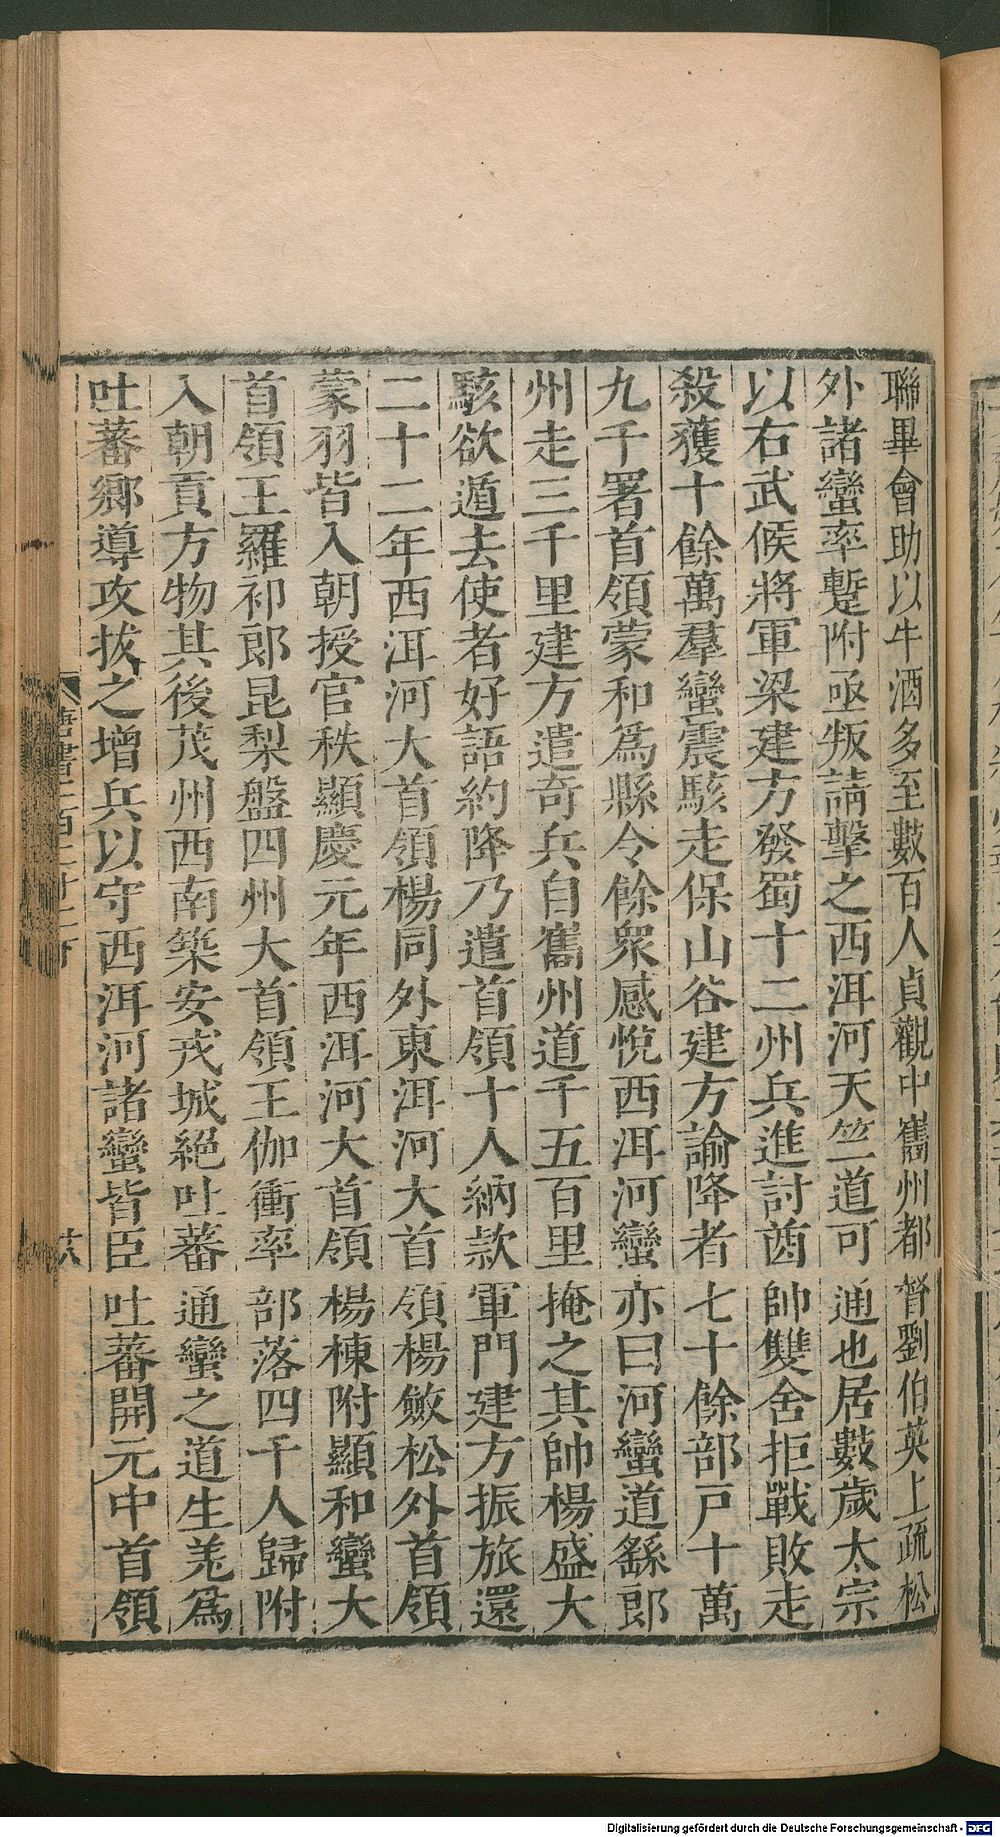 聯畢會助以牛酒多至數百人貞觀中巂州都督劉伯英上疏松
外諸蠻率蹔附亟叛請擊之西洱河天竺道可通也居數歲太宗
以右武候將軍梁建方發蜀十二州兵進討酋帥雙舍拒戰敗走
殺獲十餘萬羣蠻震駭走保山谷建方諭降者七十餘部戶十萬
九千署首領蒙和爲縣令餘衆感悅西洱河蠻亦曰河蠻道繇郎
州走三千里建方遣奇兵自巂州道千五百里掩之其帥楊盛大
駭欲遁去使者好語約降乃遣首領十人納款軍門建方振旅還
二十二年西洱河大首領楊同外東洱河大首領楊斂松外首領
蒙羽皆入朝授官秩顯慶元年西洱河大首領楊棟附顯和蠻大
首領王羅祁郎昆梨盤四州大首領王伽衝率部落四千人歸附
入朝貢方物其後茂州西南築安戎城絕吐蕃通蠻之道生羌爲
吐蕃鄉導攻拔之增兵以守西洱河諸蠻皆臣吐蕃開元中首領
唐書二百二十二下
Digitalisierung gefördert durch die Deutsche Forschungsgemeinschaft - DFG